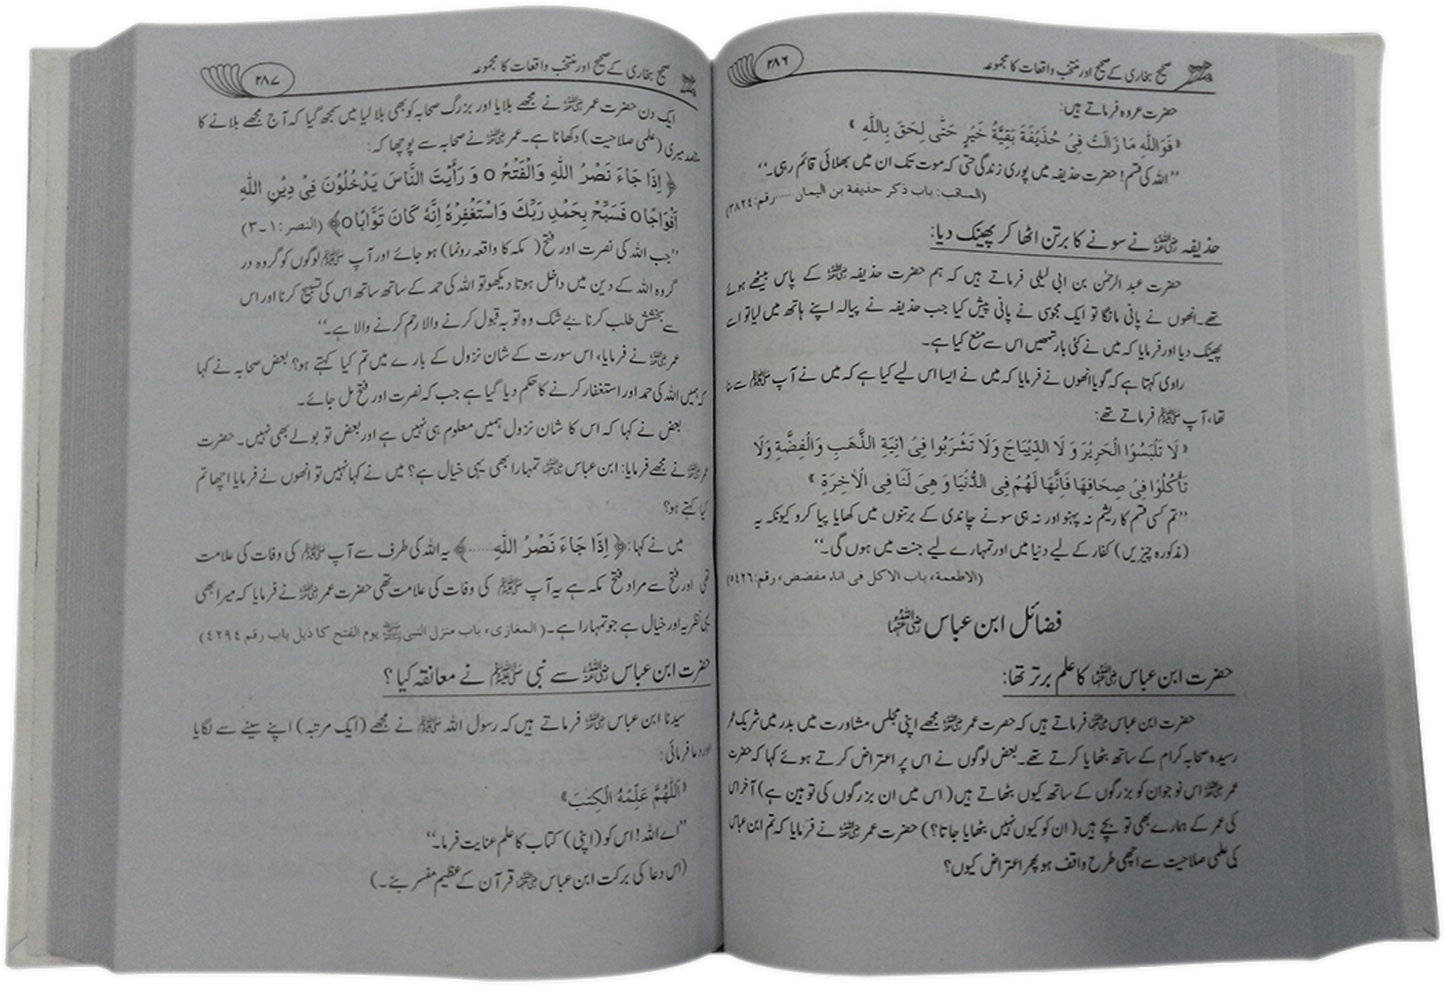 صحیح بخاری کے صحیح اور منتخب واقعات کا مجموعہ
۲۸۶
حضرت عروہ فرماتے ہیں:
﴿فَوَاللّٰهِ مَا زَالَتْ فِیْ حُذَیْفَةَ بَقِیَّةُ خَیْرٍ حَتّٰی لَحِقَ بِاللّٰهِ﴾
’’اللہ کی قسم! حضرت حذیفہ میں پوری زندگی حتی کہ موت تک ان میں بھلائی قائم رہی۔‘‘
(المناقب: باب ذکر حذیفة بن الیمان —رقم:۳۸۲۴)
حذیفہ رضی اللہ عنہ نے سونے کا برتن اٹھا کر پھینک دیا:
حضرت عبد الرحمٰن بن ابی لیلی فرماتے ہیں کہ ہم حضرت حذیفہ رضی اللہ عنہ کے پاس بیٹھے ہوئے
تھے۔انھوں نے پانی مانگا تو ایک مجوسی نے پانی پیش کیا جب حذیفہ نے پیالہ اپنے ہاتھ میں لیا تو اسے
پھینک دیا اور فرمایا کہ میں نے کئی بار تمھیں اس سے منع کیا ہے۔
راوی کہتا ہے کہ گویا انھوں نے فرمایا کہ میں نے ایسا اس لیے کیا ہے کہ میں نے آپ ﷺ سے سنا
تھا، آپ ﷺ فرماتے تھے:
﴿لَا تَلْبَسُوْا الْحَرِیْرَ وَ لَا الدِّیْبَاجَ وَلَا تَشْرَبُوا فِیْ اٰنِیَةِ الذَّهَبِ وَالْفِضَّةِ وَلَا
تَأْكُلُوْا فِیْ صِحَافِهَا فَاِنَّهَا لَهُمْ فِی الدُّنْیَا وَ هِیَ لَنَا فِی الْاٰخِرَةِ﴾
’’تم کسی قسم کا ریشم نہ پہنو اور نہ ہی سونے چاندی کے برتنوں میں کھایا پیا کرو کیونکہ یہ
(مذکورہ چیزیں) کفار کے لیے دنیا میں اور تمہارے لیے جنت میں ہوں گی۔‘‘
(الاطعمة، باب الاکل فی اناء مفضض، رقم:۵۴۲۶)
فضائل ابن عباس رضی اللہ عنہما
حضرت ابن عباس رضی اللہ عنہما کا علم برتر تھا:
حضرت ابن عباس رضی اللہ عنہما فرماتے ہیں کہ حضرت عمر رضی اللہ عنہ مجھے اپنی مجلس مشاورت میں بدر میں شریک عمر
رسیدہ صحابہ کرام کے ساتھ بٹھایا کرتے تھے۔ بعض لوگوں نے اس پر اعتراض کرتے ہوئے کہا کہ حضرت
عمر رضی اللہ عنہ اس نوجوان کو بزرگوں کے ساتھ کیوں بٹھاتے ہیں (اس میں ان بزرگوں کی توہین ہے) آخر اس
کی عمر کے ہمارے بھی تو بچے ہیں (ان کو کیوں نہیں بٹھایا جاتا؟) حضرت عمر رضی اللہ عنہ نے فرمایا کہ تم ابن عباس
کی علمی صلاحیت سے اچھی طرح واقف ہو پھر اعتراض کیوں؟
صحیح بخاری کے صحیح اور منتخب واقعات کا مجموعہ
۲۸۷
ایک دن حضرت عمر رضی اللہ عنہ نے مجھے بلایا اور بزرگ صحابہ کو بھی بلا لیا میں سمجھ گیا کہ آج مجھے بلانے کا
مقصد میری (علمی صلاحیت) دکھانا ہے۔ عمر رضی اللہ عنہ نے صحابہ سے پوچھا کہ:
﴿اِذَا جَاءَ نَصْرُ اللّٰهِ وَالْفَتْحُ o وَ رَأَیْتَ النَّاسَ یَدْخُلُوْنَ فِیْ دِیْنِ اللّٰهِ
اَفْوَاجًا o فَسَبِّحْ بِحَمْدِ رَبِّكَ وَاسْتَغْفِرْهُ اِنَّهٗ كَانَ تَوَّابًا o﴾ (النصر:۱۔۳)
’’جب اللہ کی نصرت اور فتح (مکہ کا واقعہ رونما) ہو جائے اور آپ ﷺ لوگوں کو گروہ در
گروہ اللہ کے دین میں داخل ہوتا دیکھو تو اللہ کی حمد کے ساتھ ساتھ اس کی تسبیح کرنا اور اس
سے بخشش طلب کرنا بے شک وہ تو بہ قبول کرنے والا رحم کرنے والا ہے۔‘‘
عمر رضی اللہ عنہ نے فرمایا، اس سورت کے شان نزول کے بارے میں تم کیا کہتے ہو؟ بعض صحابہ نے کہا
کہ ہمیں اللہ کی حمد اور استغفار کرنے کا حکم دیا گیا ہے جب کہ نصرت اور فتح مل جائے۔
بعض نے کہا کہ اس کا شان نزول ہمیں معلوم ہی نہیں ہے اور بعض تو بولے بھی نہیں۔ حضرت
عمر رضی اللہ عنہ نے مجھے فرمایا: ابن عباس رضی اللہ عنہما تمہارا بھی یہی خیال ہے؟ میں نے کہا نہیں تو انھوں نے فرمایا اچھا تم
کیا کہتے ہو؟
میں نے کہا: ﴿اِذَا جَاءَ نَصْرُ اللّٰهِ......﴾ یہ اللہ کی طرف سے آپ ﷺ کی وفات کی علامت
تھی اور فتح سے مراد فتح مکہ ہے یہ آپ ﷺ کی وفات کی علامت تھی حضرت عمر رضی اللہ عنہ نے فرمایا کہ میرا بھی
یہی نظریہ اور خیال ہے جو تمہارا ہے۔ (المغازی، باب منزل النبی ﷺ یوم الفتح کا ذیل باب رقم ۴۲۹۴)
حضرت ابن عباس رضی اللہ عنہما سے نبی ﷺ نے معانقہ کیا؟
سیدنا ابن عباس رضی اللہ عنہما فرماتے ہیں کہ رسول اللہ ﷺ نے مجھے (ایک مرتبہ) اپنے سینے سے لگایا
اور دعا فرمائی:
﴿اَللّٰهُمَّ عَلِّمْهُ الْكِتٰبَ﴾
’’اے اللہ! اس کو (اپنی) کتاب کا علم عنایت فرما۔‘‘
(اس دعا کی برکت ابن عباس رضی اللہ عنہما قرآن کے عظیم مفسر بنے۔)